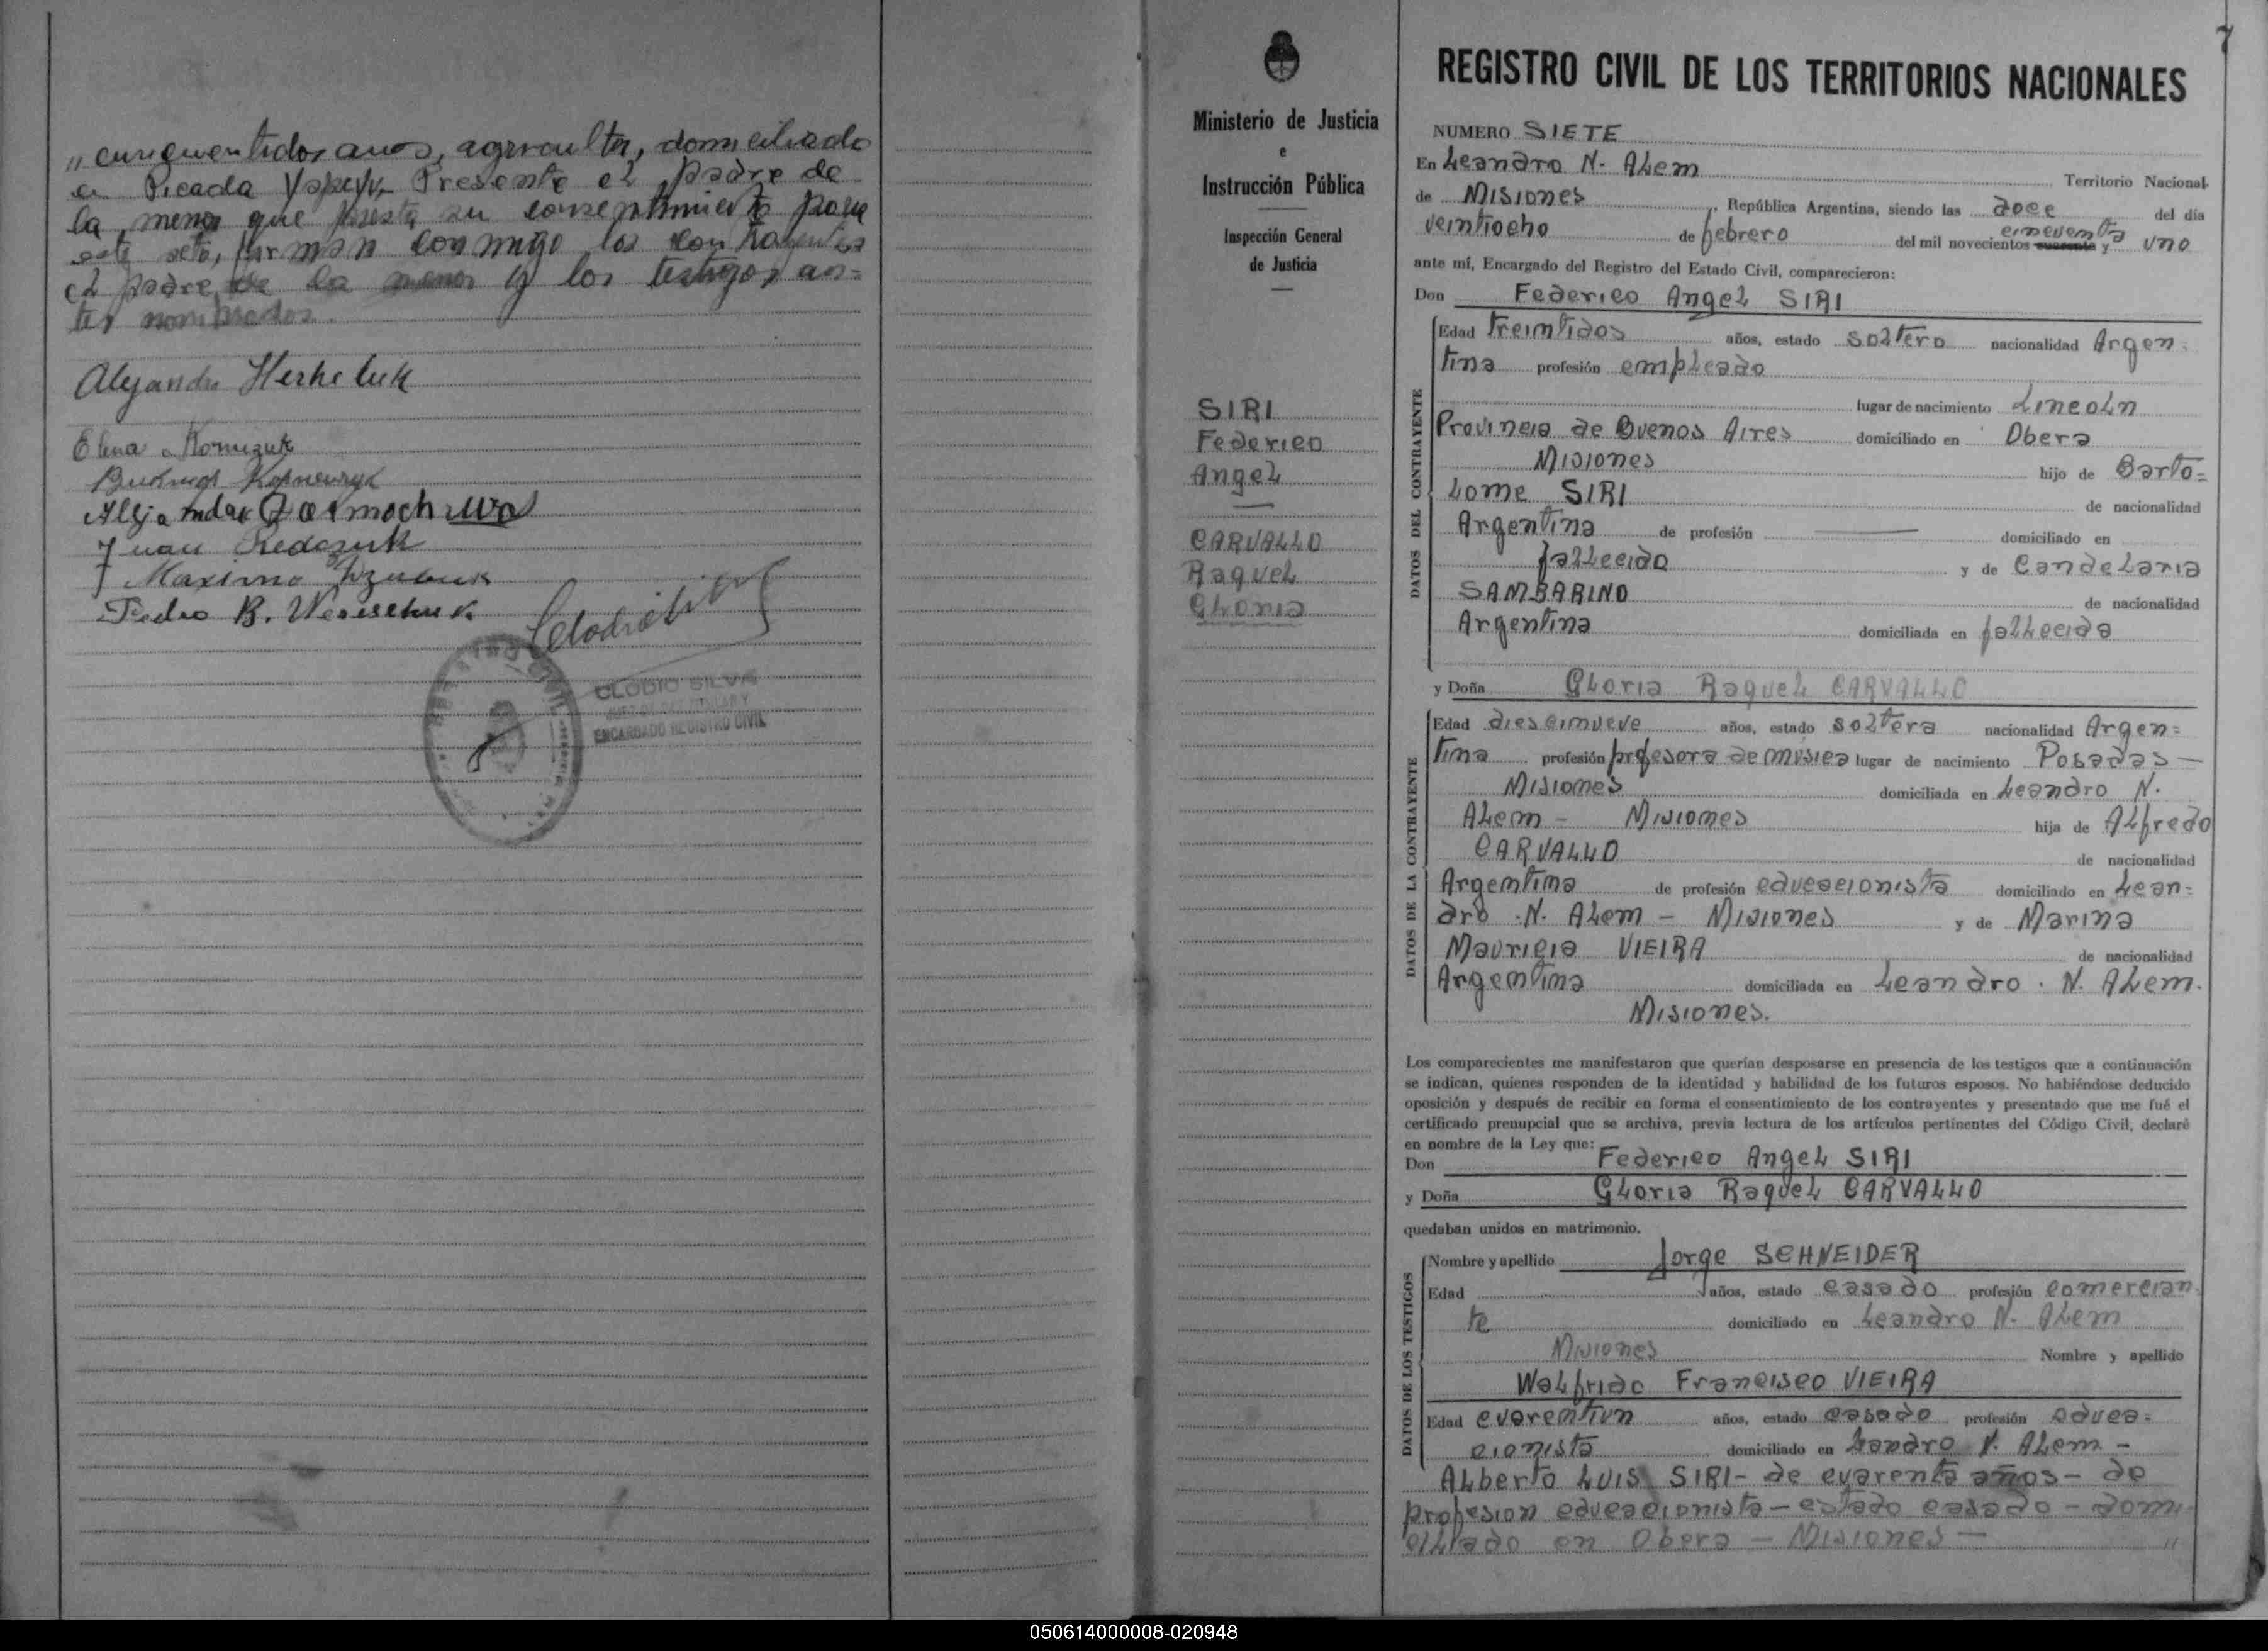 „ cincuentidos anos, agricultor, domiciliado
en Picada Yapeyú- Presente el padre de
la menor que presta su consentimiento para
este acto, firman conmigo los contrayentes
el padre de la menor y los testigos an=
tes nombrados.
Alejandro Herheluk
Elena Kornizuk
Juan Redczuk
Maximo
Pedro B. Wereschuk
CLODIO SILVA
ENCARGADO REGISTRO CIVIL
Ministerio de Justicia
e
Instrucción Pública
Inspección General
de Justicia
SIRI
Federico
Angel
CARVALLO
Raquel
Gloria
7
REGISTRO CIVIL DE LOS TERRITORIOS NACIONALES
NUMERO SIETE
En Leandro N. Alem Territorio Nacional
de Misiones, República Argentina, siendo las doce del día
veintiocho de febrero del mil novecientos cuarenta y cincuenta uno
ante mí, Encargado del Registro del Estado Civil, comparecieron:
Don Federico Angel SIRI
DATOS DEL CONTRAYENTE
Edad treintidos años, estado soltero nacionalidad Argen=
tina profesión empleado
lugar de nacimiento Lincoln
Provincia de Buenos Aires domiciliado en Obera
Misiones hijo de Barto=
lome SIRI de nacionalidad
Argentina de profesión — domiciliado en
fallecido y de Candelaria
SAMBARINO de nacionalidad
Argentina domiciliada en fallecida
y Doña Gloria Raquel CARVALLO
DATOS DE LA CONTRAYENTE
Edad diescinueve años, estado soltera nacionalidad Argen=
tina profesión profesora de música lugar de nacimiento Posadas —
Misiones domiciliada en Leandro N.
Alem - Misiones hija de Alfredo
CARVALLO de nacionalidad
Argentina de profesión educacionista domiciliado en Lean=
dro N. Alem - Misiones y de Marina
Mauricia VIEIRA de nacionalidad
Argentina domiciliada en Leandro N. Alem.
Misiones.
Los comparecientes me manifestaron que querían desposarse en presencia de los testigos que a continuación
se indican, quienes responden de la identidad y habilidad de los futuros esposos. No habiéndose deducido
oposición y después de recibir en forma el consentimiento de los contrayentes y presentado que me fué el
certificado prenupcial que se archiva, previa lectura de los artículos pertinentes del Código Civil, declaré
en nombre de la Ley que:
Don Federico Angel SIRI
y Doña Gloria Raquel CARVALLO
quedaban unidos en matrimonio.
DATOS DE LOS TESTIGOS
Nombre y apellido Jorge SCHNEIDER
Edad años, estado casado profesión comercian=
te domiciliado en Leandro N. Alem
Misiones Nombre y apellido
Walfrido Francisco VIEIRA
Edad cuarentiun años, estado casado profesión educa=
cionista domiciliado en Leandro N. Alem -
Alberto LUIS SIRI- de cuarenta años - de
profesion educacionista - estado casado - domi=
ciliado en Obera - Misiones — „
050614000008-020948